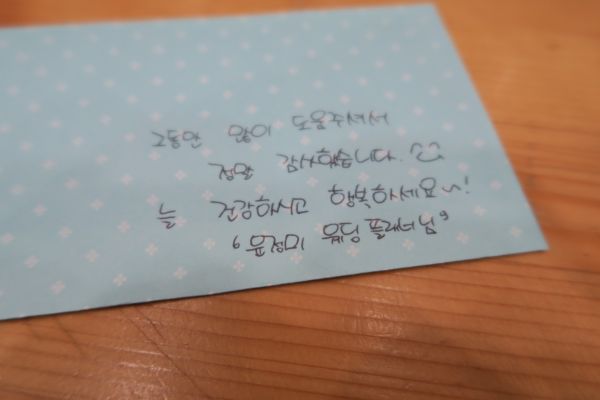 그동안 많이 도움주셔서
정말 감사했습니다.
늘 건강하시고 행복하세요~!
“윤정미 웨딩 플래너님”